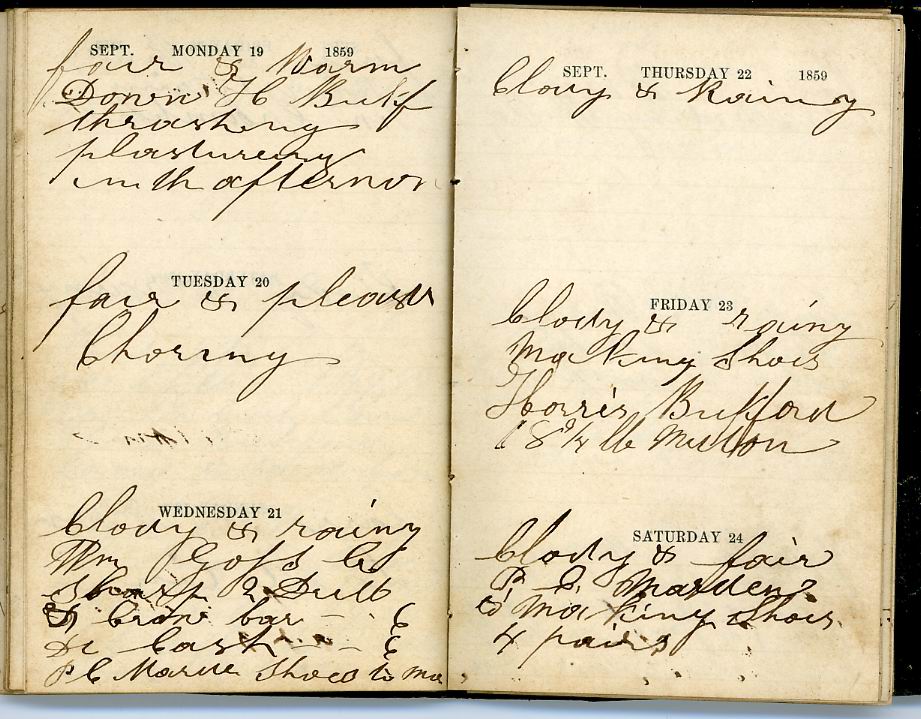 SEPT. MONDAY 19 1859
fair & Warm
Down H Bukf
thrashing
plastureing
in th afternon
TUESDAY 20
fair & pleasa
Choring
WEDNESDAY 21
Clody & rainy
Wm Goss Cr
Sharp 2 Drill
& Crow bar - 6
Dr Cash - 6
P C Marde Shoes to ma
SEPT. THURSDAY 22 1859
Clody & Rainy
FRIDAY 23
Clody & rainy
Making Shoes
Harris Bukford
18 3/4 lb Mutton
SATURDAY 24
Clody & fair
P C Marden
Making Shoes
4 pairs